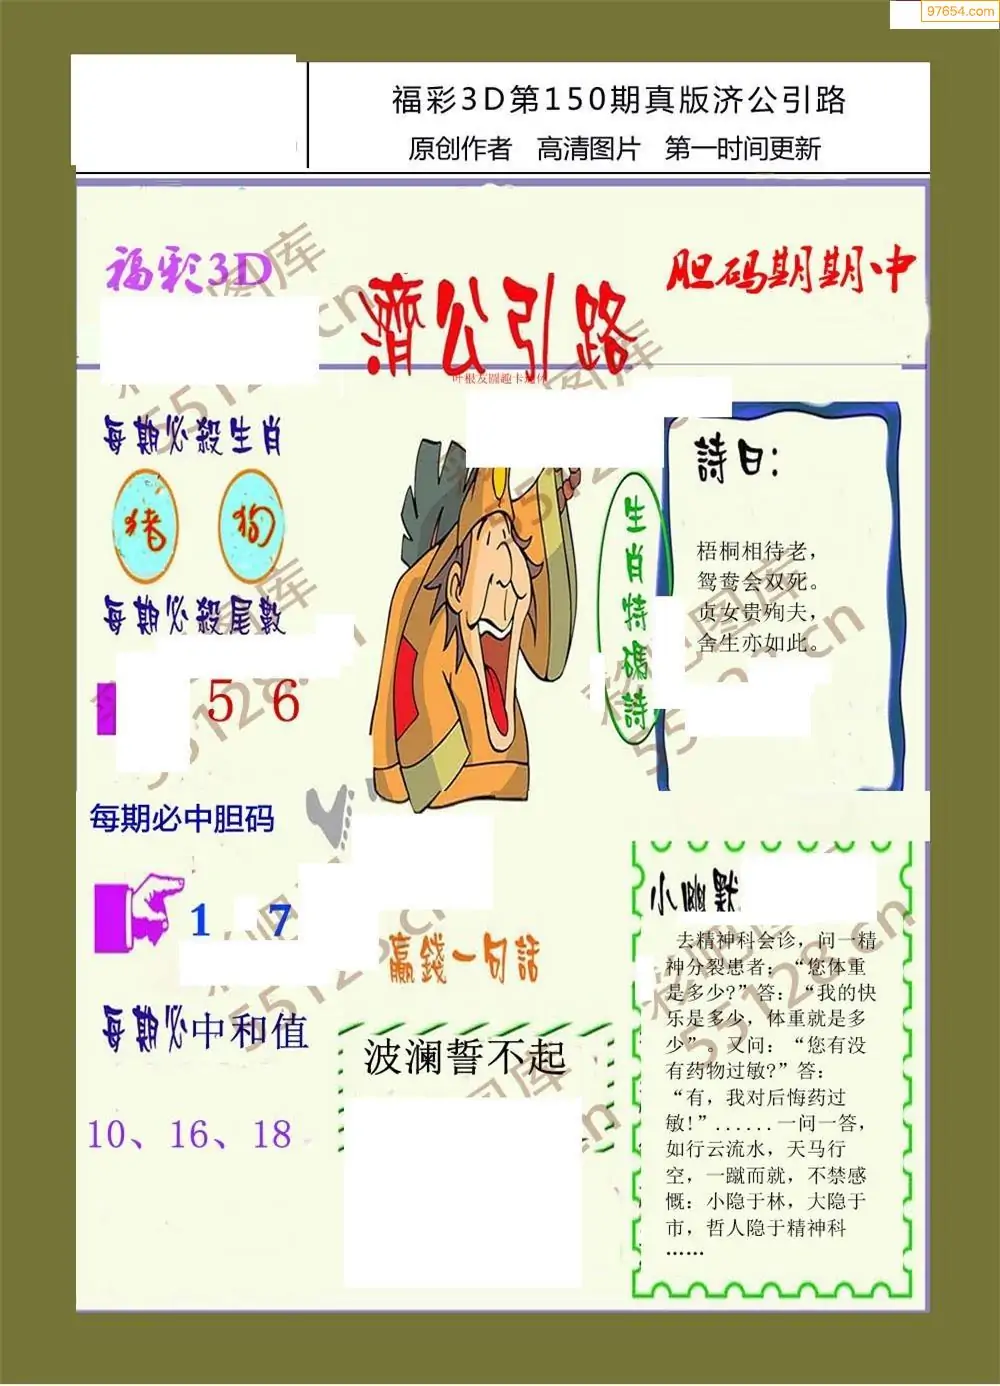 97654.com
福彩3D第150期真版济公引路
原创作者 高清图片 第一时间更新
福彩3D
濟公引路
胆码期期中
叶根友圆趣卡通体
每期必殺生肖
猪 狗
每期必殺尾數
5 6
每期必中胆码
1 7
每期必中和值
10、16、18
生肖特碼詩
詩曰:
梧桐相待老，
鸳鸯会双死。
贞女贵殉夫，
舍生亦如此。
贏錢一句話
波澜誓不起
小幽默
去精神科会诊，问一精
神分裂患者：“您体重
是多少?”答：“我的快
乐是多少，体重就是多
少”。又问：“您有没
有药物过敏?”答：
“有，我对后悔药过
敏!”......一问一答，
如行云流水，天马行
空，一蹴而就，不禁感
慨：小隐于林，大隐于
市，哲人隐于精神科
......
55128.cn
55128.cn
55128.cn